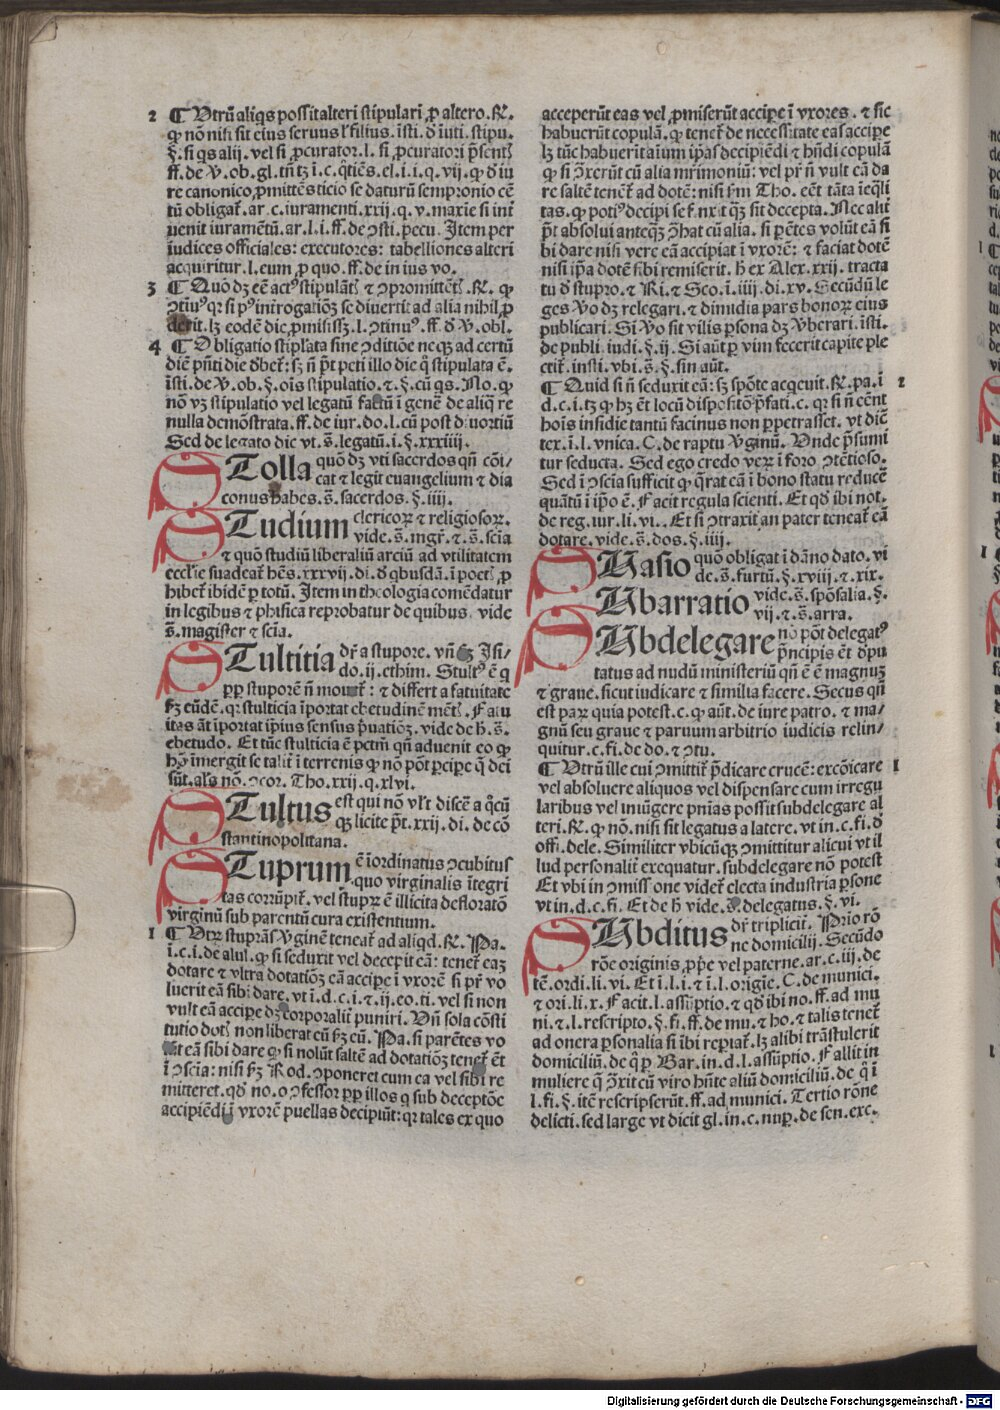 2 ¶ Utrũ aliqs possit alteri stipulari ꝓ altero. ℞.
ꝙ nõ nisi sit eius seruus ł filius. insti. ð inuti. stipu.
§. si qs alij. vel si ꝓcurator. l. si ꝓcuratori p̃sentꝭ
ff. de ꝟ. ob. gl. tñ tꝫ i. c. q̃tiẽs. el. i. i. q. vij. ꝙ ð iu
re canonico ꝓmittẽs ticio se daturũ sempronio cẽ
tũ obligat᷑. ar. c. iuramenti. xxij. q. v. maxĩe si int᷑
uenit iuramẽtũ. ar. l. i. ff. de ɔsti. pecu. Item per
iudices officiales: executores: tabelliones alteri
acquiritur. l. eum ꝓ quo. ff. de in ius vo.
3 ¶ Quõ dꝫ eẽ actꝰ stipulãtꝭ ⁊ ɔpromittẽtꝭ. ℞. ꝙ
ɔtinuꝰ qr si pꝰ introgatiõꝫ se diuertit ad alia nihil ꝓ
derit. lꝫ eodẽ die ꝓmisissꝫ. l. ɔtinuꝰ. ff. ð ꝟ. obl.
4 ¶ Obligatio stip̃lata sine ɔditiõe neqꝫ ad certũ
diẽ p̃nti die dbet᷑: sꝫ ñ p̃t peti illo die q̃ stipulata ẽ.
ĩsti. de ꝟ. ob. §. oĩs stipulatio. ⁊. §. cũ qs. No. ꝙ
nõ vꝫ stipulatio vel legatũ factũ ĩ genẽ de aliq̃ re
nulla demõstrata. ff. de iur. do. l. cũ post diuortiũ
Sed de legato dic vt. s̃. legatũ. i. §. xxxiiij.
STolla quõ dꝫ vti sacerdos qñ cõi/
cat ⁊ legit euangelium ⁊ dia
conus habes. s̃. sacerdos. §. iiij.
STudium clericoꝝ ⁊ religiosoꝝ.
vide. s̃. mgr̃. ⁊. s̃. sciã
⁊ quõ studiũ liberaliũ arciũ ad vtilitatem
ecclĩe suadeat᷑ hẽs. xxxvij. di. ð qbusdã. ĩ poetꝭ ꝓ
hibet᷑ ibidẽ ꝑ totũ. Item in theologia comẽdatur
in legibus ⁊ phisica reprobatur de quibus vide
s̃. magister ⁊ sciã.
STultitia dr̃ a stupore. vñ Isi/
do. ii. ethim. Stultꝰ ẽ q
ꝓpꝑ stuporẽ ñ mouet᷑: ⁊ differt a fatuitate
fꝫ eũdẽ. qꝛ stulticia ĩportat ebetudinẽ mẽtꝭ. Fatu
itas aũt ĩportat ip̃ius sensus p̃uatiõꝫ. vide de h̃. s̃.
ebetudo. Et tũc stulticia ẽ petm̃ qñ aduenit eo ꝙ
hõ ĩmergit se talit᷑ ĩ terrenis ꝙ nõ põt ꝑcipe q̃ dei
sũt. als nõ. ɔcor. Tho. xxij. q. xlvi.
STultus est qui nõ vl't discẽ a q̃cũ
qꝫ licite p̃t. xxij. di. de cõ
stantinopolitana.
STuprum ẽ iordinatus ɔcubitus
quo virginalis ĩtegri
tas corrũpit᷑. vel stupꝝ ẽ illicita defloratõ
virginũ sub parentũ cura existentium.
1 ¶ Utꝝ stuprãs ꝟginẽ teneat᷑ ad aliqd. ℞. Pa.
i. c. i. de adul. ꝙ si seduxit vel decepit eã: tenet᷑ eaꝫ
dotare ⁊ vltra dotatiõꝫ eã accipe ĩ vxorẽ si pr̃ vo
luerit eã sibi dare. vt i. d. c. i. ⁊. ij. eo. ti. vel si non
vult eã accipe dꝫ corporalit᷑ puniri. Uñ sola cõsti
tutio dotꝭ non liberat eũ fꝫ eũ. Pa. si parẽtes vo
lũt eã sibi dare ꝙ si nolũt saltẽ ad dotatiõꝫ tenet᷑ ẽt
ĩ ɔsciã: nisi fꝫ Rod. ɔponeret cum ea vel sibi re
mitteret. qð no. o ɔfessor ꝓpꝑ illos q sub deceptõe
accipiẽdi ĩ vxorẽ puellas decipiũt: qꝛ tales ex quo
acceperũt eas vel ꝓmiserũt accipe ĩ vxores. ⁊ sic
habuerũt copulã. ꝙ tenet᷑ de necessitate eas accipe
lꝫ tũc habuerĩt aĩum ip̃as decipiẽdi ⁊ hñdi copulã
ꝙ si ɔxerũt cũ alia mr̃imoniũ: vel pr̃ ñ vult eã da
re saltẽ tenet᷑ ad dotẽ: nisi fm̃ Tho. eẽt tãta ĩeqli
tas. ꝙ potiꝰ decipi se fĩnxit q̃ꝫ sit decepta. Nec alit᷑
p̃t absolui anteqꝫ ɔhat cũ alia. si pẽtes volũt eã si
bi dare nisi vere eã accipiat ĩ vxorẽ: ⁊ faciat dotẽ
nisi ip̃a dotẽ sibi remiserit. h̃ ex Alex. xxij. tracta
tu ð stupro. ⁊ Ri. ⁊ Sco. ĩ. iiij. di. xv. Secũdũ le
ges ꝟo dꝫ relegari. ⁊ dimidia pars honorꝝ eius
publicari. Si ꝟo sit vilis ꝑsona dꝫ ꝟberari. ĩsti.
de publi. iudi. §. ij. Si aũt ꝑ vim fecerit capite ple
ctit᷑. insti. vbi. s̃. §. sin aũt.
¶ Quid si ñ seduxit eã: sꝫ spõte acqeuit. ℞. pa. ĩ 2
d. c. i. tꝫ ꝙ hꝫ ẽt locũ dispositõ p̃fati. c. qꝛ si ñ eẽnt
hoĩs insidie tantũ facinus non ꝑpetrasset. vt diẽ
tex. ĩ. l. vnica. C. de raptu ꝟginũ. Unde p̃sumi
tur seducta. Sed ego credo veꝝ ĩ foro ɔtẽtioso.
Sed ĩ ɔscia sufficit ꝙ q̃rat eã ĩ bono statu reducẽ
quãtũ ĩ ip̃o ẽ. Facit regula scienti. Et qð ibi not.
de reg. iur. li. vi. . Et si ɔtraxit an pater teneat᷑ eã
dotare. vide. s̃. dos. §. iiij.
SUasio quõ obligat ĩ dãno dato. vi
de. s̃. furtũ. §. xviij. ⁊. xix.
SUbarratio vide. s̃. spõsalia. §.
vij. ⁊. s̃. arra.
SUbdelegare nõ põt delegatꝰ
p̃ncipis ẽt dp̃u
tatus ad nudũ ministeriũ qñ ẽ ẽ magnuꝫ
⁊ graue. sicut iudicare ⁊ similia facere. Secus qñ
est parꝝ quia potest. c. ꝙ aũt. de iure patro. ⁊ ma/
gnũ seu graue ⁊ paruum arbitrio iudicis relin/
quitur. c. fi. de do. ⁊ ɔtu.
¶ Utrũ ille cui ɔmittit᷑ p̃dicare crucẽ: excõicare 1
vel absoluere aliquos vel dispensare cum irregu
laribus vel iniũgere pnĩas possit subdelegare al
teri. ℞. ꝙ nõ. nisi sit legatus a latere. vt in. c. fi. ð
offi. dele. Similiter vbicũqꝫ ɔmittitur alicui vt il
lud personalit᷑ exequatur. subdelegare nõ potest
Et vbi in ɔmissione videt᷑ electa industria ꝑsone
vt in. d. c. fi. Et de h̃ vide. s̃. delegatus. §. vi.
SUbditus dr̃ triplicit᷑. Prio rõ
ne domicilij. Secũdo
rõe originis ꝓp̃e vel paterne. ar. c. iij. de
tẽ. ordi. li. vi. Et ĩ. l. i. ⁊ ĩ. l. origĩe. C. de munici.
⁊ ori. li. x. Facit. l. assũptio. ⁊ qð ibi no. ff. ad mu
ni. ⁊. l. rescripto. §. fi. ff. de mu. ⁊ ho. ⁊ talis tenet᷑
ad onera ꝑsonalia si ibi repiat᷑. lꝫ alibi trãstulerit
domiciliũ. de q̃ ꝑ Bar. in. d. l. assũptio. Fallit in
muliere q̃ ɔxit cũ viro hñte aliũ domiciliũ. de q̃ ĩ
l. fi. §. itẽ rescripserũt. ff. ad munici. Tertio rõne
delicti. sed large vt dicit gl. in. c. nuꝑ. de sen. exc.
Digitalisierung gefördert durch die Deutsche Forschungsgemeinschaft - DFG